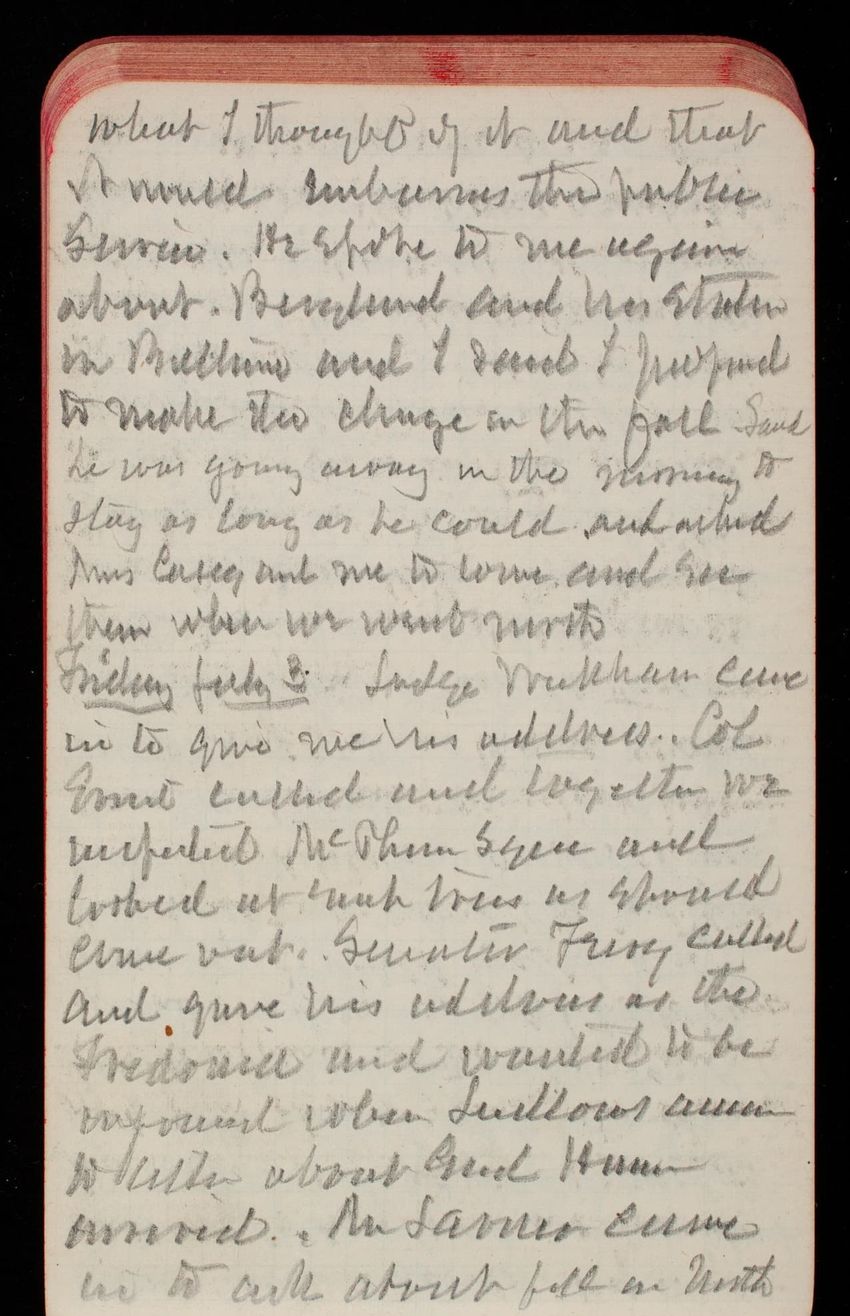 what I thought of it and that
it would embarrass the public
Service. He spoke to me again
about. Berglund and his Station
in and I said I proposed
to make the change in the fall Said
he was going away in the morning to
stay as long as he could and asked
Mrs Casey and me to come and see
them when we went north
Friday July 3 Judge came
in to give me his address. Col
Ernst called and together we
inspected McPherson Square and
looked at such trees as should
come out. Senator called
and gave his address as the
Fredonia and wanted to be
informed when Ludlows answer
to letter about Grand Haven
arrived. Mr came
in to ask about fill on North